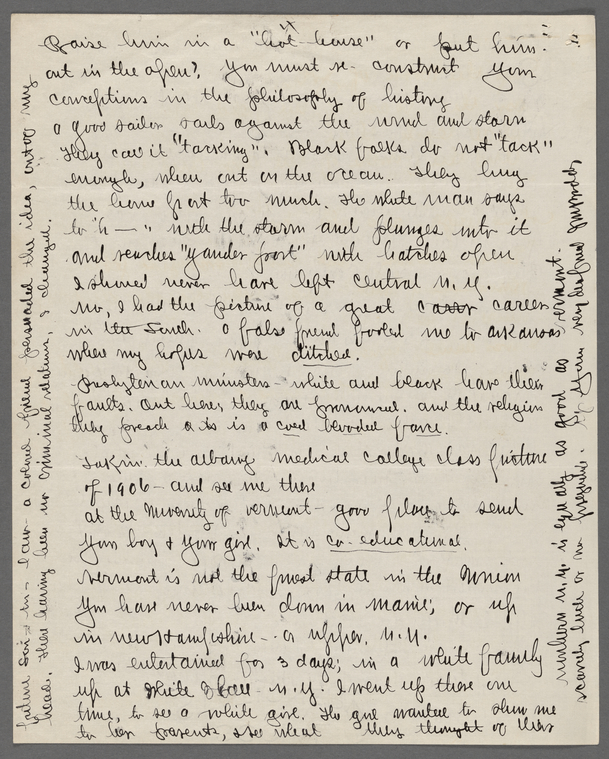 Raise him in a "hot-house" or put him
out in the open? You must re-construct your
conceptions in the philosophy of history
a good sailor sails against the wind and storm
they call it "tacking". Black folks do not "tack"
enough, when out on the ocean. They hug
the home port too much. The white man says
to h— " with the storm and plunges into it
and reaches "yander port" with hatches open
I should never have left central N.Y.
No, I had the picture of a great career
in the South. a false friend fooled me to arkansas
where my hopes were ditched.
Presbyterian ministers - white and black have their
faults. Out here, they are pronounced. and the religion
they preach is a cold blooded farce.
Take the albany medical college class picture
of 1906 - and see me there
at the University of vermont - good place to send
your boy & your girl. It is co-educational.
Vermont is not the finest state in the Union
You have never been down in maine; or up
in new Hampshire - or upper N.Y.
I was entertained for 3 days; in a white family
up at White N.Y. I went up there one
time, to see a white girl. The girl wanted to show me
to her parents, see what they thought of
future son-in-law - a colored friend persuaded the idea, out of my
head. There having been no criminal relations, I changed.
northern N.Y. is equally as good as vermont.
scarcely such or no prejudice.